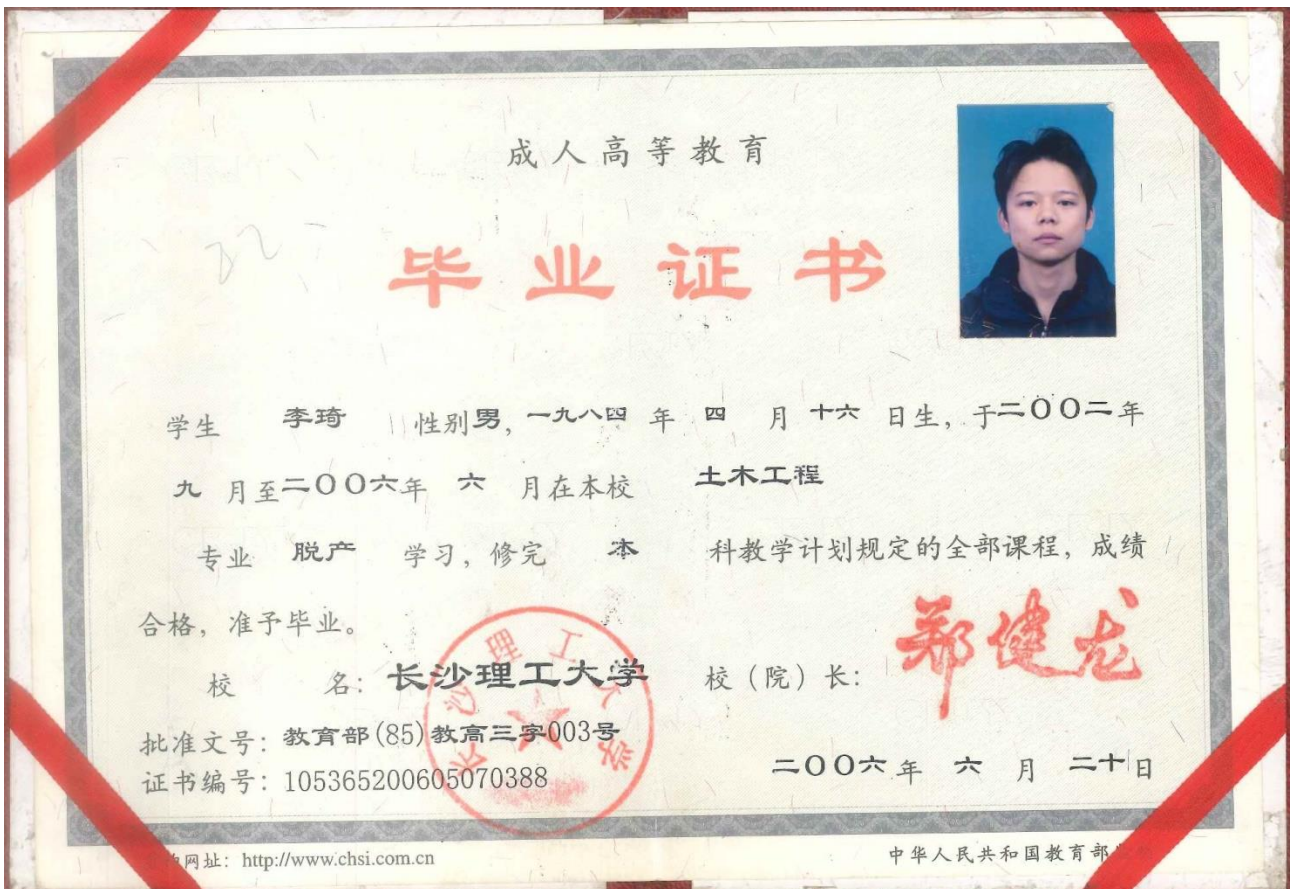 成人高等教育
毕业证书
22
学生 李琦 性别男, 一九八四 年 四 月 十六 日生, 于二〇〇二年
九 月至二〇〇六年 六 月在本校 土木工程
专业 脱产 学习, 修完 本 科教学计划规定的全部课程, 成绩
合格, 准予毕业。
校 名: 长沙理工大学 校 (院) 长: 郑健龙
长沙理工大学
批准文号: 教育部(85)教高三字003号
二〇〇六 年 六 月 二十日
证书编号: 105365200605070388
网址: http://www.chsi.com.cn 中华人民共和国教育部